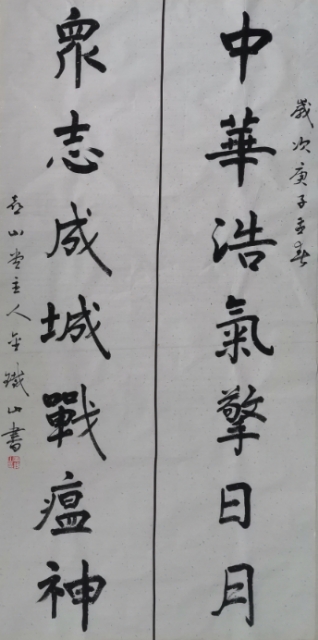 歲次庚子春
中華浩氣擎日月
衆志成城戰瘟神
山堂主人金鐵山書